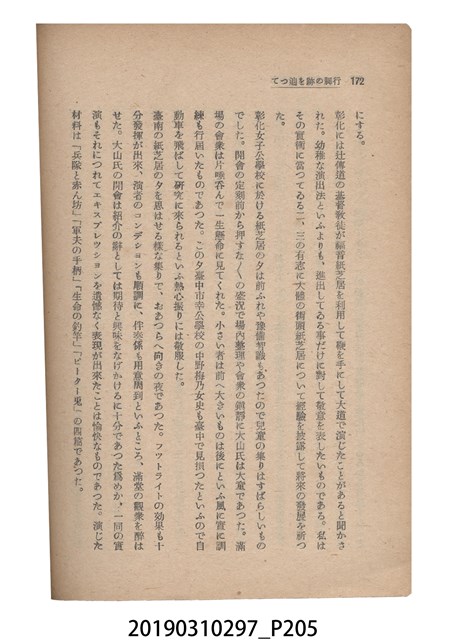 172 行脚の跡を追つて
にする。
彰化には辻傳道の基督教徒が福音紙芝居を利用して鞭を手にして大道で演じたことがあると聞かさ
れた。幼稚な演出法といふよりも、進出してゐる事だけに對して敬意を表したいものである。私は
その實演に當つてゐる二、三の有志に大體の街頭紙芝居について經驗を披露して將來の發展を祈つ
た。
彰化女子公學校に於ける紙芝居の夕は前ふれや豫備智識もあつたので兒童の集りはすばらしいもの
でした。開會の定刻前から押すな〳〵の盛況で場內整理や會衆の鎭靜に大山氏は大童であつた。滿
場の會衆は片唾呑んで一生懸命に見てくれた。小さい者は前へ大きいものは後にといふ風に實に訓
練も行屆いたものであつた。この夕臺中市幸公學校の中野梅乃女史も臺中で見損つたといふので自
動車を飛ばして研究に來られるといふ熱心振りには敬服した。
臺南の紙芝居の夕を思はせる樣な集りで、おあつらへ向きの夜であつた。フツトライトの効果も十
分發揮が出來、演者のコンデシヨンも順調に、伴奏係も用意周到といふところ、滿堂の觀衆を醉は
せた。大山氏の開會は紹介の辭としては期待と興味をなげかけるに十分であつた爲めか、一同の實
演もそれにつれてエキスプレツシヨンを遺憾なく表現が出來たことは愉快なものであつた。演じた
材料は「兵隊と赤ん坊」「軍夫の手柄」「生命の釣竿」「ピーター兎」の四篇であつた。
20190310297_P205